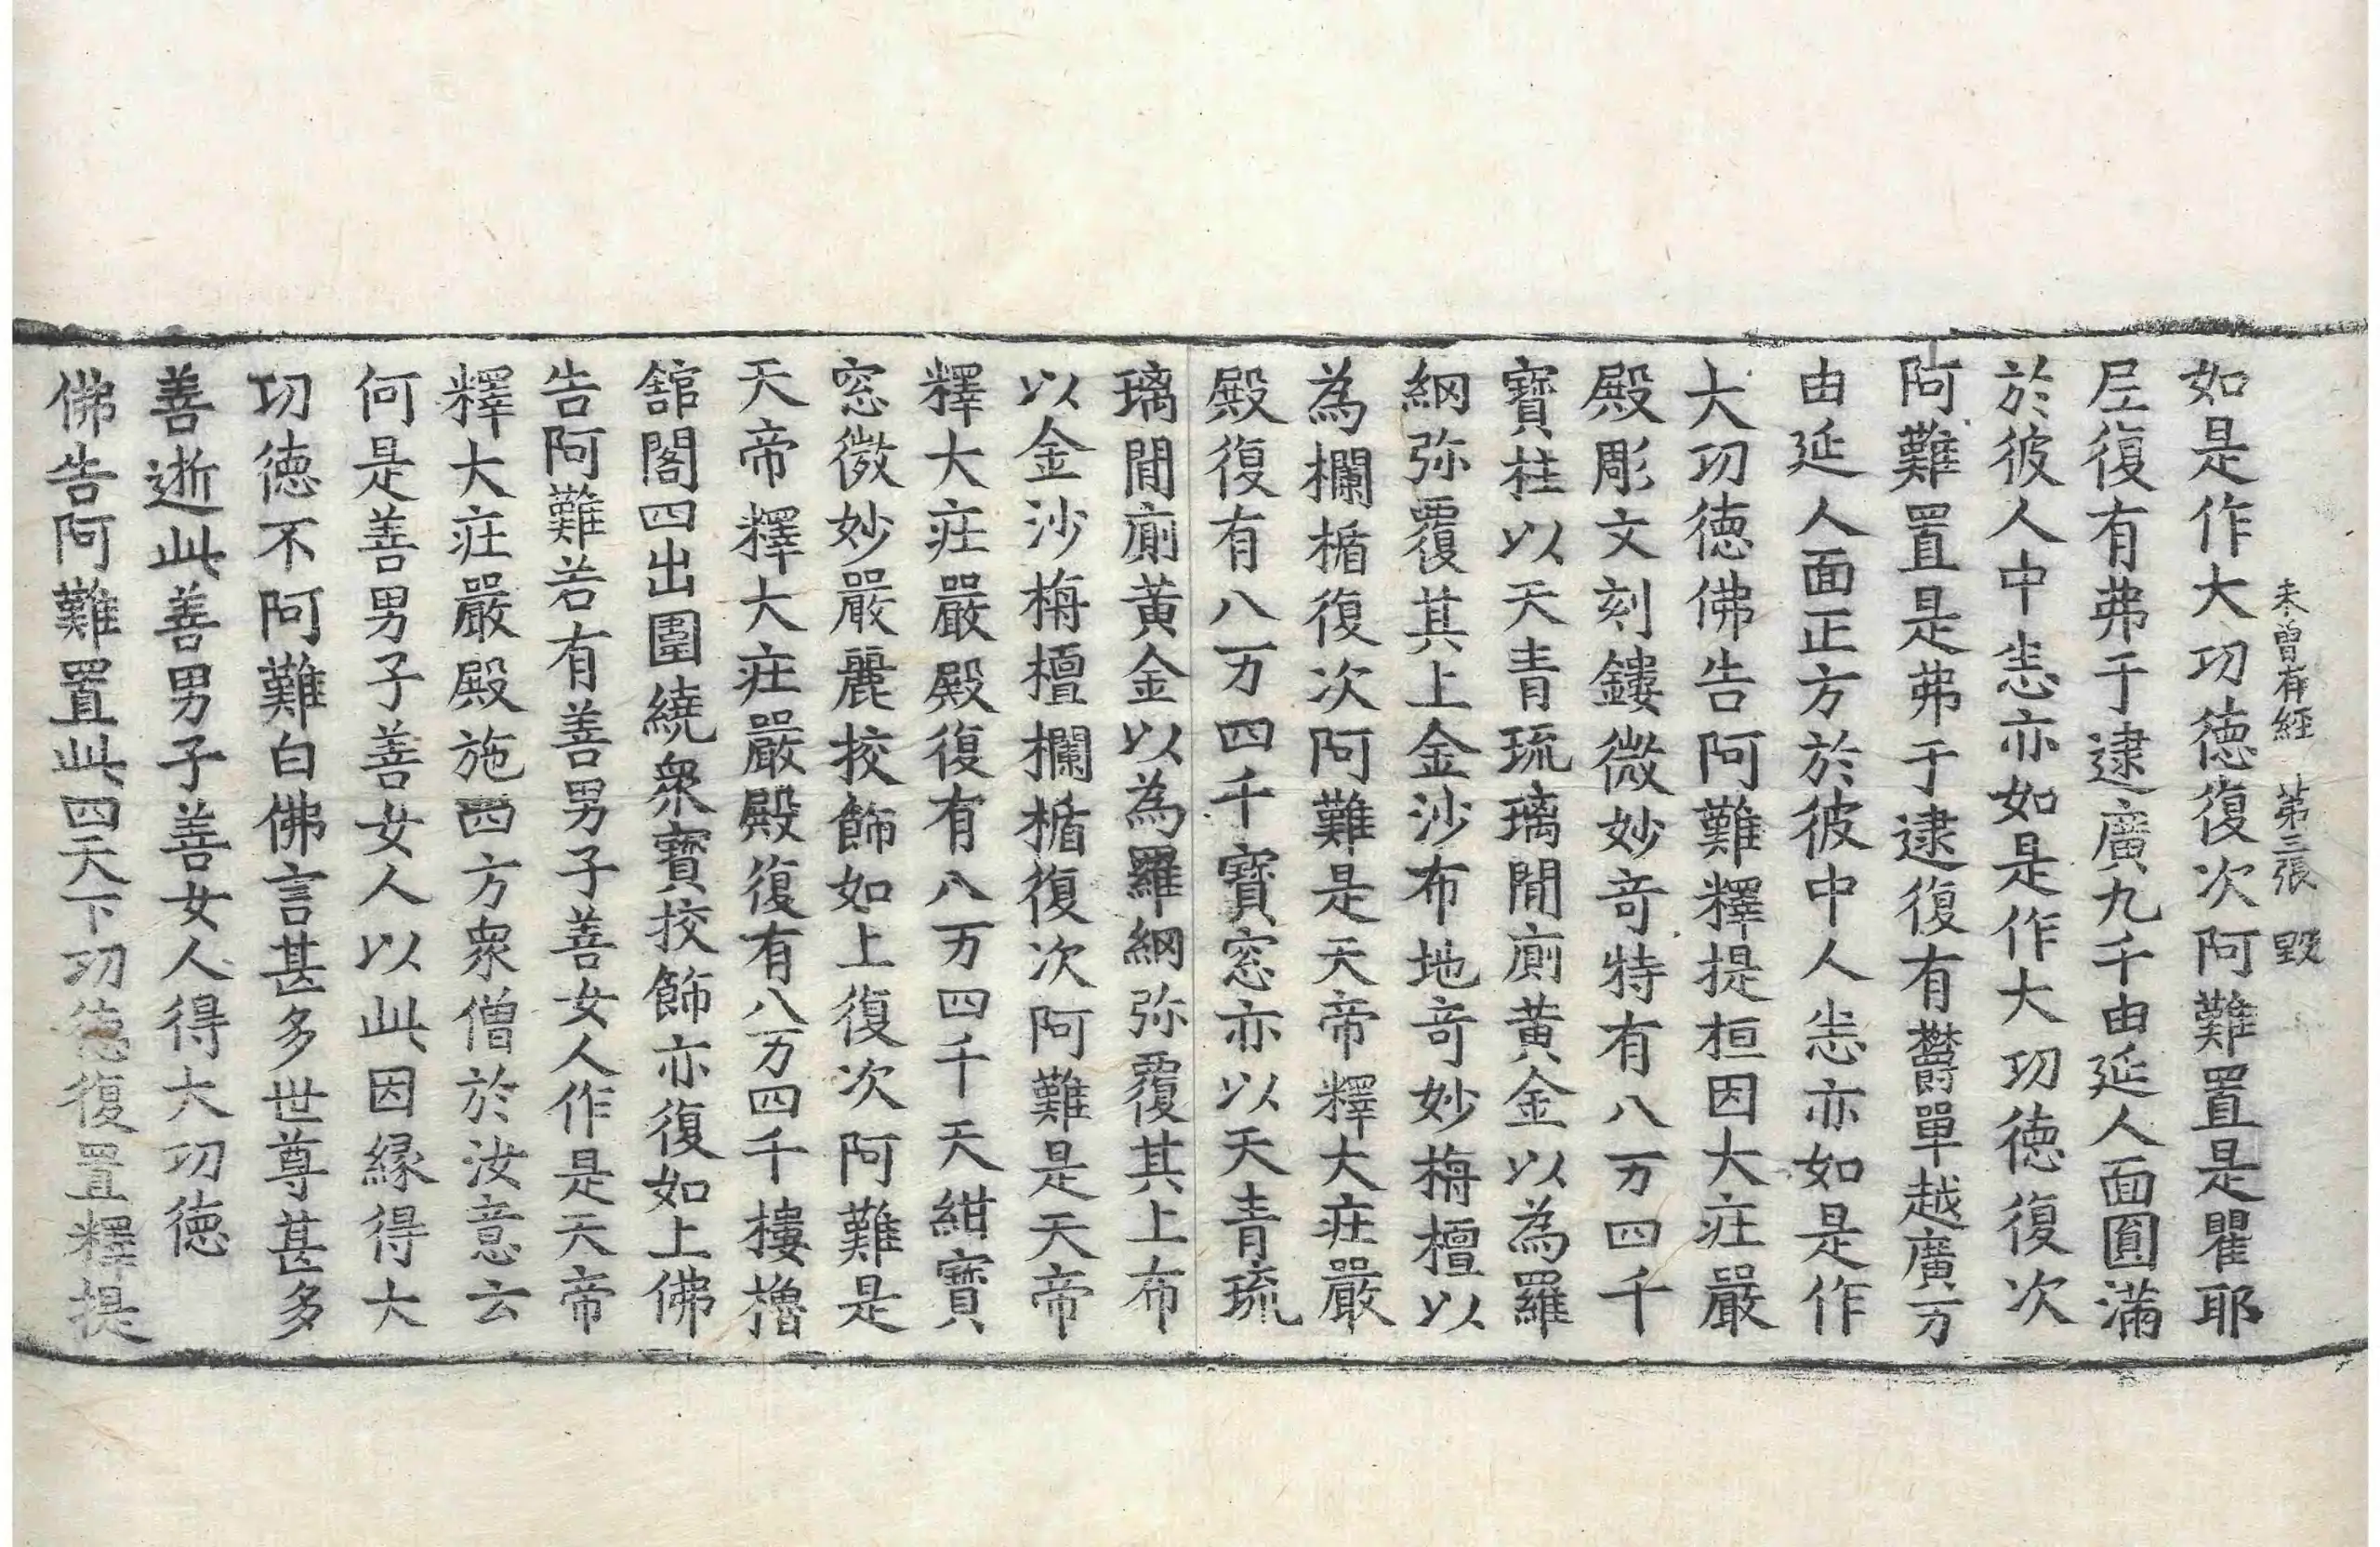 未曾有經 第三張 毀
如是作大功德復次阿難置是瞿耶
尼復有弗于逮廣九千由延人面圓滿
於彼人中悉亦如是作大功德復次
阿難置是弗于逮復有欝單越廣万
由延人面正方於彼中人悉亦如是作
大功德佛告阿難釋提桓因大莊嚴
殿彫文刻鏤微妙竒特有八万四千
寶柱以天青琉璃閒廁黃金以為羅
網弥覆其上金沙布地竒妙栴檀以
為欄楯復次阿難是天帝釋大莊嚴
殿復有八万四千寶窓亦以天青琉
璃閒廁黃金以為羅網弥覆其上布
以金沙栴檀欄楯復次阿難是天帝
釋大莊嚴殿復有八万四千天紺寶
窓微妙嚴麗挍飾如上復次阿難是
天帝釋大莊嚴殿復有八万四千樓櫓
舘閣四出圍繞衆寶挍飾亦復如上佛
告阿難若有善男子善女人作是天帝
釋大莊嚴殿施四方衆僧於汝意云
何是善男子善女人以此因緣得大
功德不阿難白佛言甚多世尊甚多
善逝此善男子善女人得大功德
佛告阿難置此四天下功德復置釋提